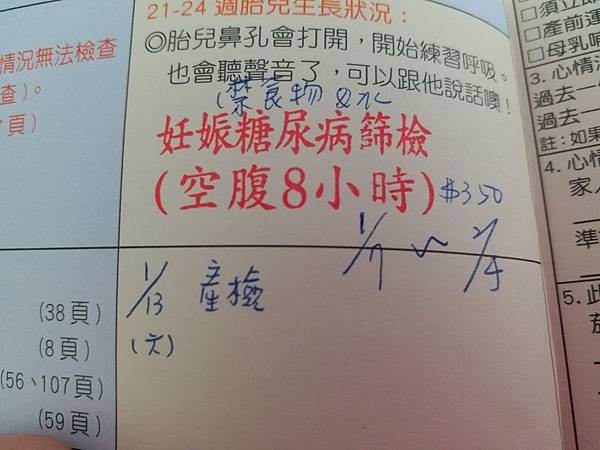 21-24 週胎兒生長狀況：
◎胎兒鼻孔會打開，開始練習呼吸。
也會聽聲音了，可以跟他說話噢！
(禁食物 & 水
妊娠糖尿病篩檢
(空腹8小時) $350
1/7 ~ 2/4
1/13 產檢
(六)
情況無法檢查
查)。
頁)
(38頁)
(8頁)
(56、107頁)
(59頁)
□須立即
□產前運
□母乳哺
3. 心情溫
過去一
過去一
註：如果
4. 心情
家人
準
5. 此